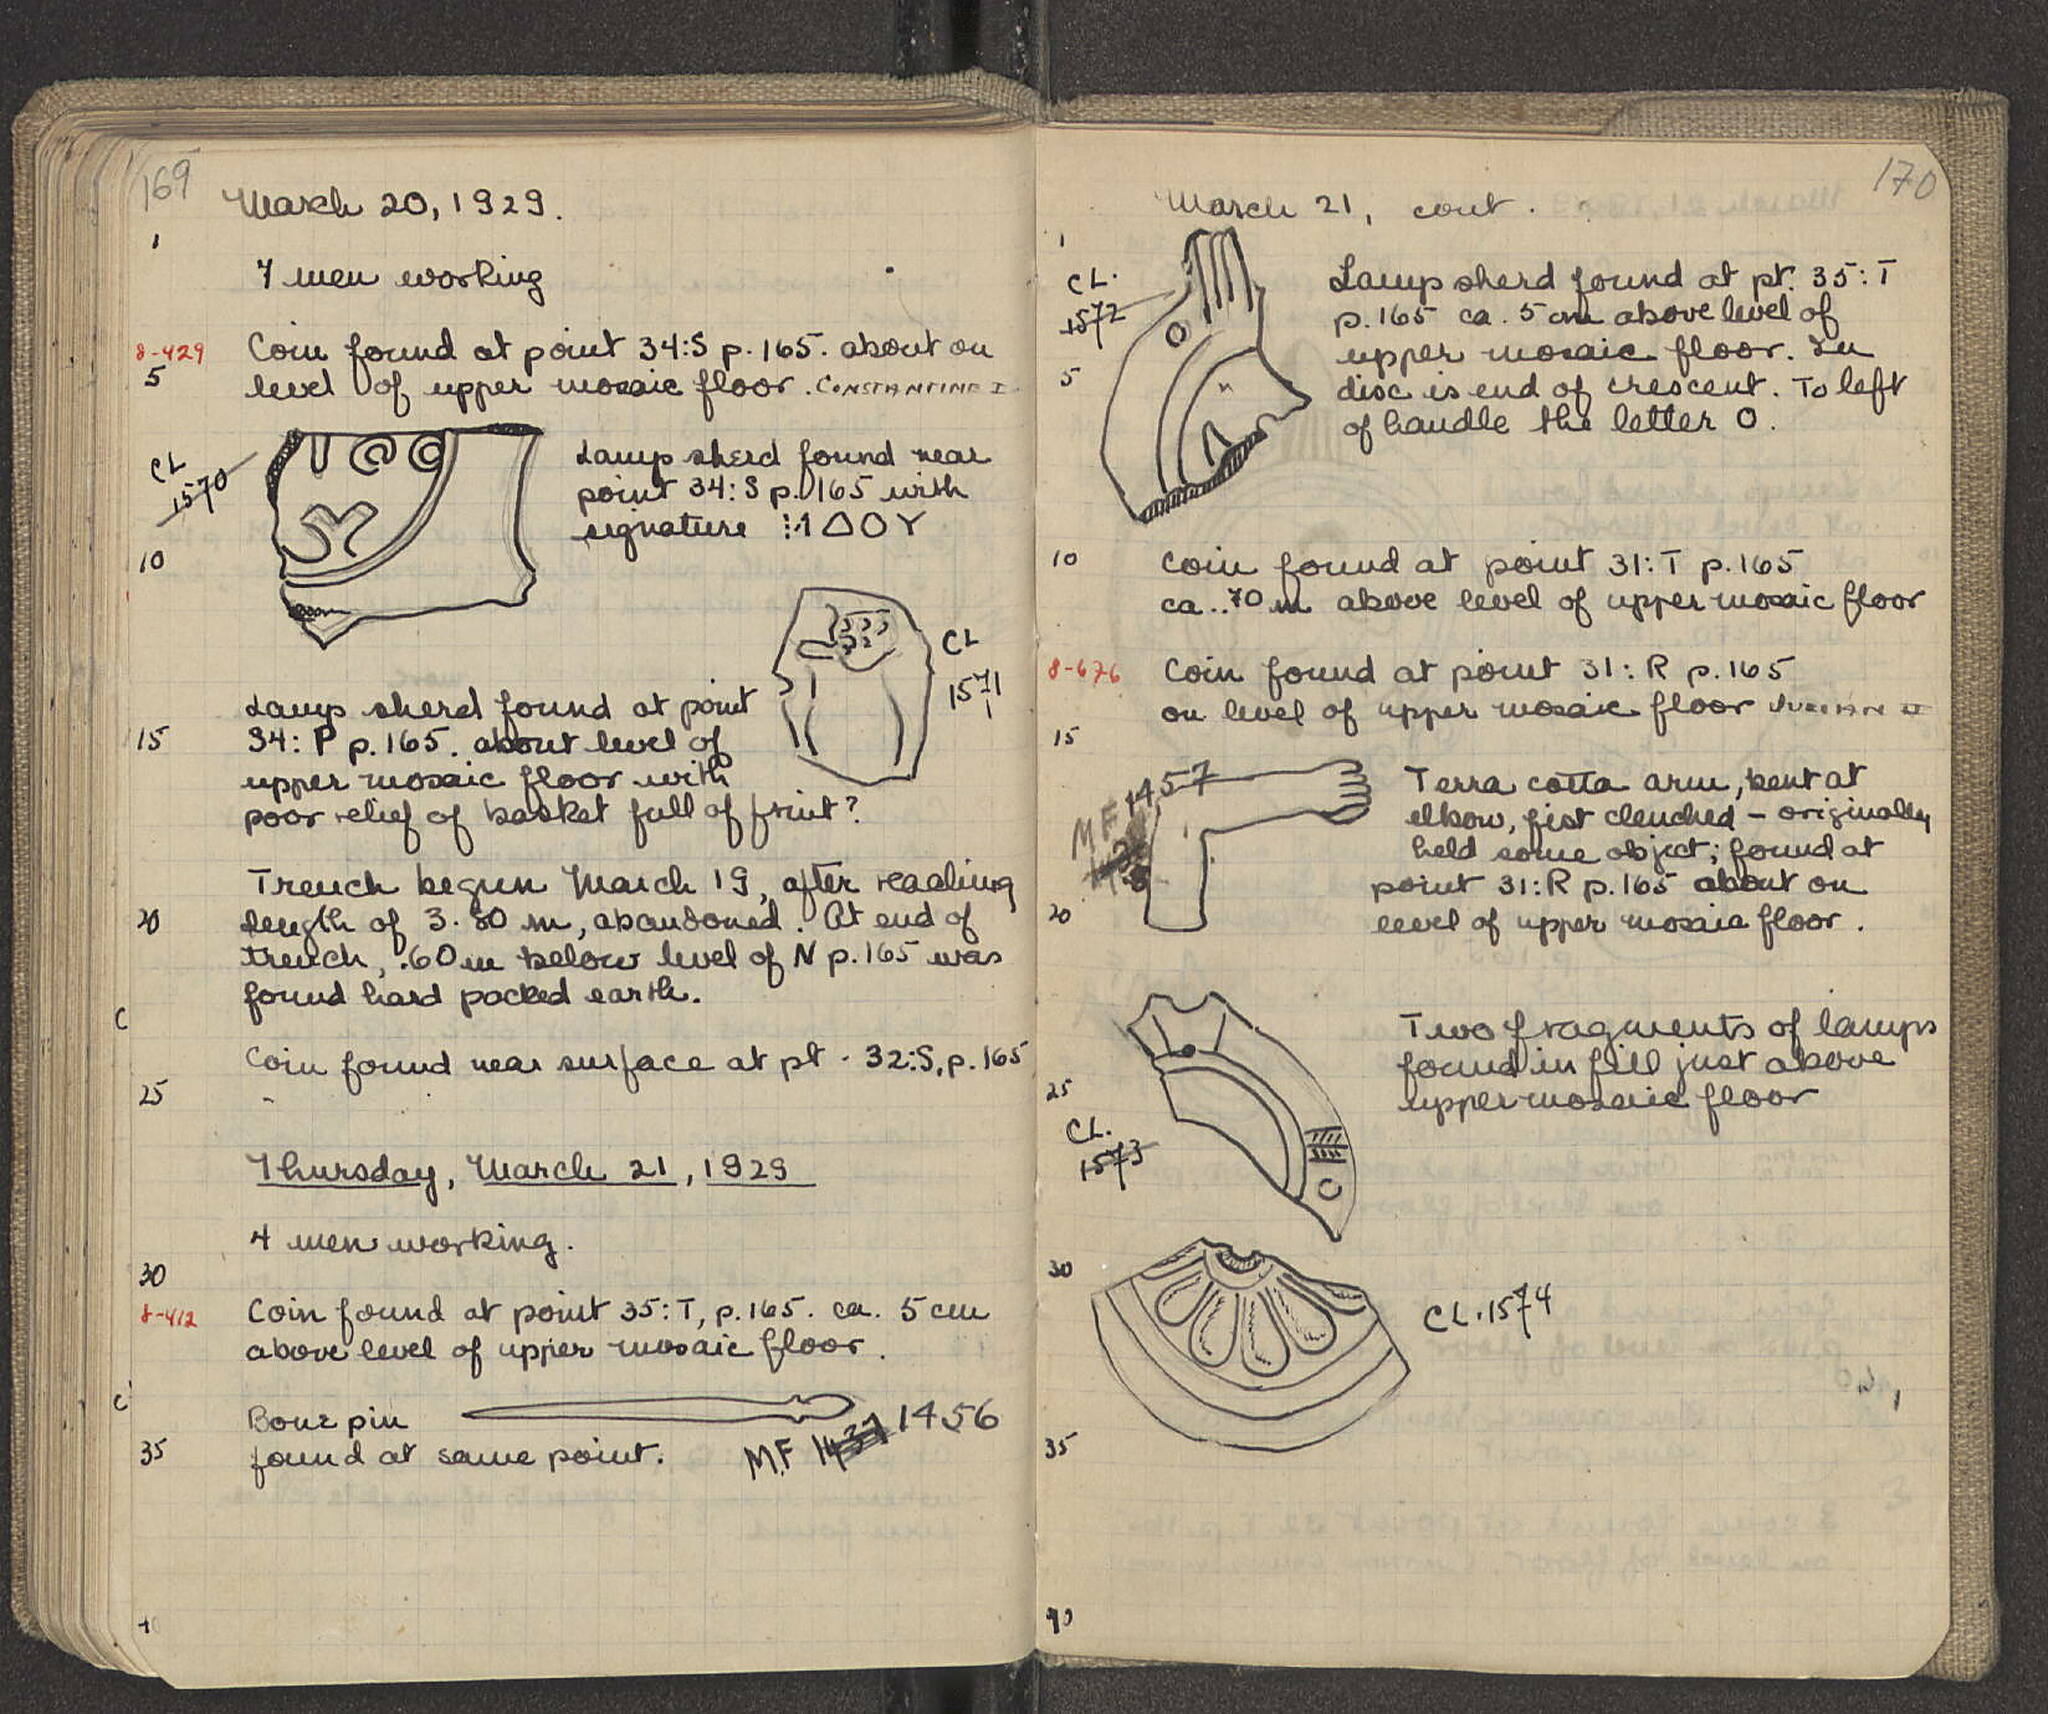 169
March 20, 1929.
1
7 men working
8-429
Coin found at point 34:S p. 165. about on
5
level of upper mosaic floor. CONSTANTINE I
CL
1570
Lamp sherd found near
point 34:S p. 165 with
signature
ΔΟΥ
10
CL
1571
Lamp sherd found at point
15
34: P p. 165. about level of
upper mosaic floor with
poor relief of basket full of fruit?
Trench begun March 19, after reaching
20
length of 3.80 m, abandoned. At end of
trench, .60 m below level of N p. 165 was
found hard packed earth.
C
Coin found near surface at pt. 32:S, p. 165
25
Thursday, March 21, 1929
4 men working.
30
8-412
Coin found at point 35:T, p. 165. ca. 5 cm
above level of upper mosaic floor.
C
Bone pin
35
found at same point.
MF 1456
170
March 21, cont.
1
CL.
1572
Lamp sherd found at pt. 35:T
p. 165 ca. 5 cm above level of
5
upper mosaic floor. In
disc is end of crescent. To left
of handle the letter O.
10
Coin found at point 31:T p. 165
ca. .70 m above level of upper mosaic floor
8-676
Coin found at point 31: R p. 165
on level of upper mosaic floor
15
MF 1457
Terra cotta arm, bent at
elbow, fist clenched – originally
held some object; found at
point 31:R p. 165 about on
20
level of upper mosaic floor.
Two fragments of lamps
found in fill just above
25
upper mosaic floor
CL.
1573
30
CL. 1574
35
40